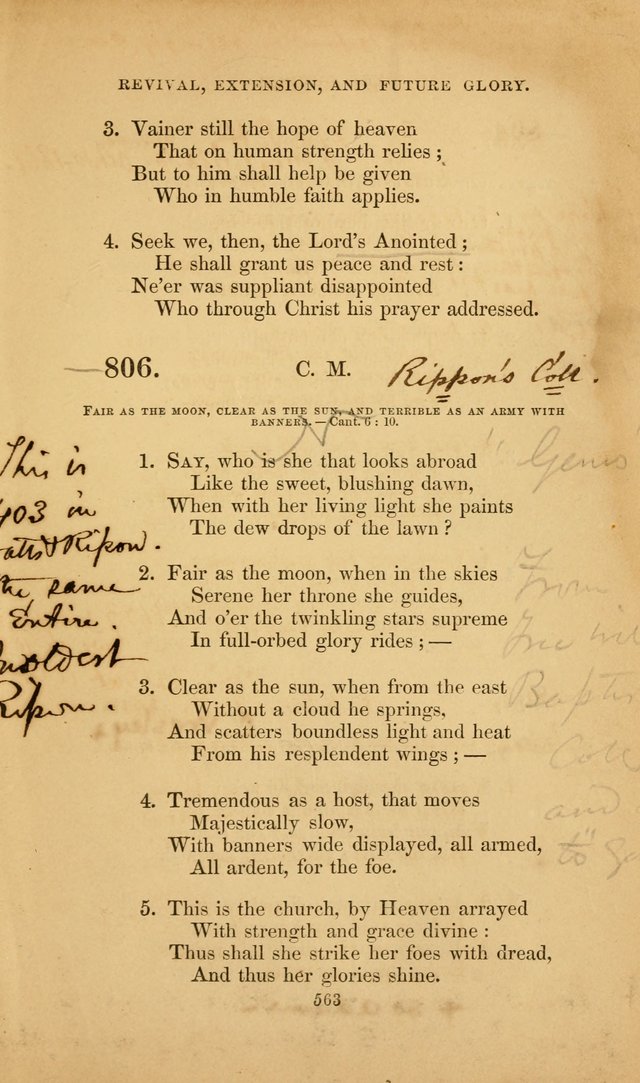 REVIVAL, EXTENSION, AND FUTURE GLORY.
3. Vainer still the hope of heaven
That on human strength relies;
But to him shall help be given
Who in humble faith applies.
4. Seek we, then, the Lord's Anointed;
He shall grant us peace and rest:
Ne'er was suppliant disappointed
Who through Christ his prayer addressed.
806. C. M. Rippon's Coll.
FAIR AS THE MOON, CLEAR AS THE SUN, AND TERRIBLE AS AN ARMY WITH
BANNERS.—Cant. 6 : 10.
1. SAY, who is she that looks abroad
Like the sweet, blushing dawn,
When with her living light she paints
The dew drops of the lawn?
2. Fair as the moon, when in the skies
Serene her throne she guides,
And o'er the twinkling stars supreme
In full-orbed glory rides;—
3. Clear as the sun, when from the east
Without a cloud he springs,
And scatters boundless light and heat
From his resplendent wings;—
4. Tremendous as a host, that moves
Majestically slow,
With banners wide displayed, all armed,
All ardent, for the foe.
5. This is the church, by Heaven arrayed
With strength and grace divine:
Thus shall she strike her foes with dread,
And thus her glories shine.
563
This is
403 in
atts & Ripon.
the same
Entire.
oldest
Ripon.
"Gems"
From
Free Wil
Baptis
Coll
and
"to